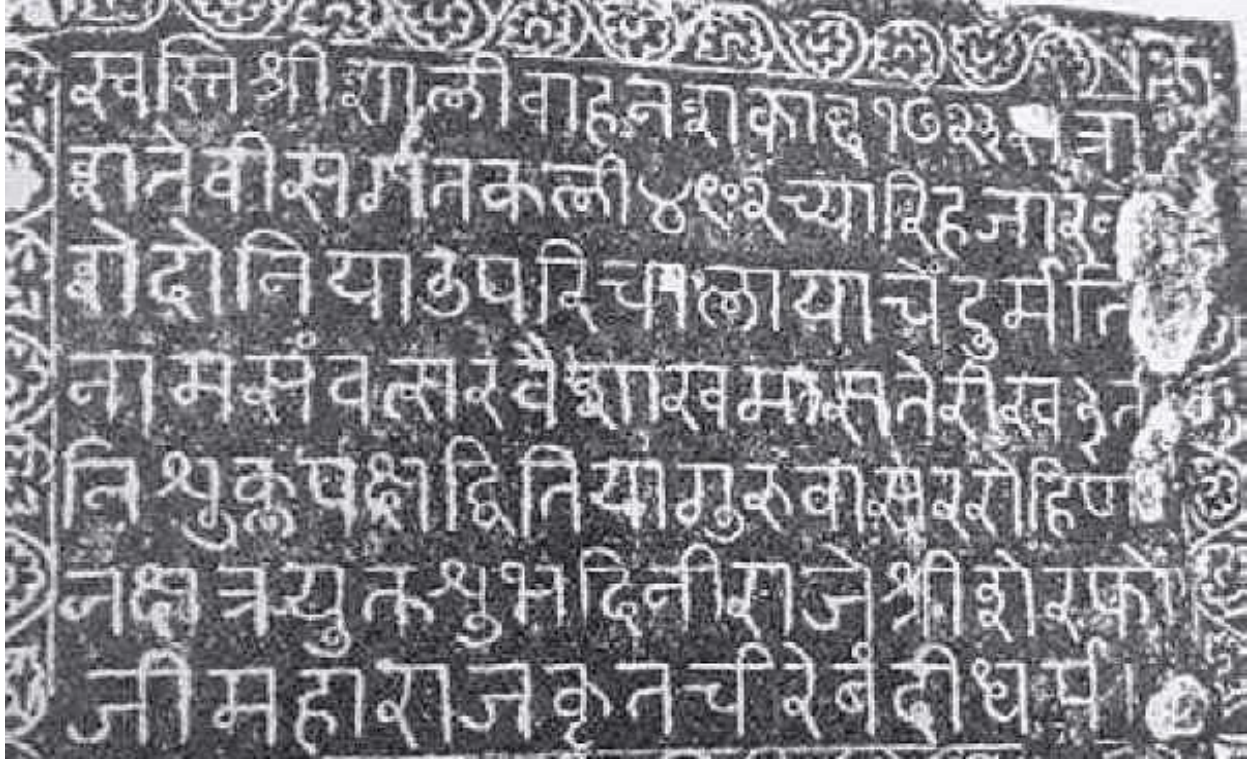 स्वस्ति श्री शालीवाहन शकाब्द १७२३
शते वीस मीत कली ४९०२ च्यारि हजार
शे दोनिया उपरि चालायाचे दुर्मति
नाम संवत्सर वैशाख मास तेरीख
शुक्लपक्ष द्वितिया गुरुवासर रोहिण
नक्षत्र युक्त शुभदिनी राजे श्री शेरफो
जी महाराज कृत चीरेबंदी धर्म